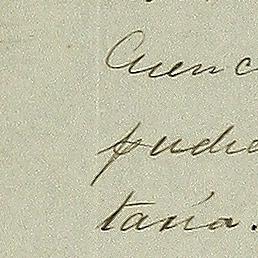 Cuenc
pudie
taria.